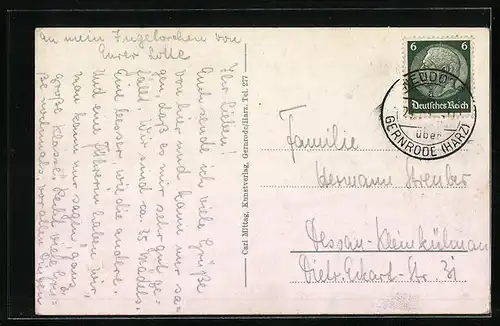 an mein Ingelorchen von
Eurer Lotte
Ihr Lieben!
Euch sende ich viele Grüße
von hier und kann nur sa-
gen, daß es mir sehr gut ge-
fällt. Wir sind ca. 35 Mädels.
Eine besser wie die andere.
Und eine Führerin haben wir,
man kann nur sagen, ganz
große Klasse! Recht viele Grü-
ße nochmals, vor allen Dingen
Carl Mittag, Kunstverlag, Gernrode/Harz. Tel. 277
6 6
Deutsches Reich
über
GERNRODE (HARZ)
Familie
Hermann Streuber
Dessau-Kleinkühnau
Dietr. Eckart-Str. 31